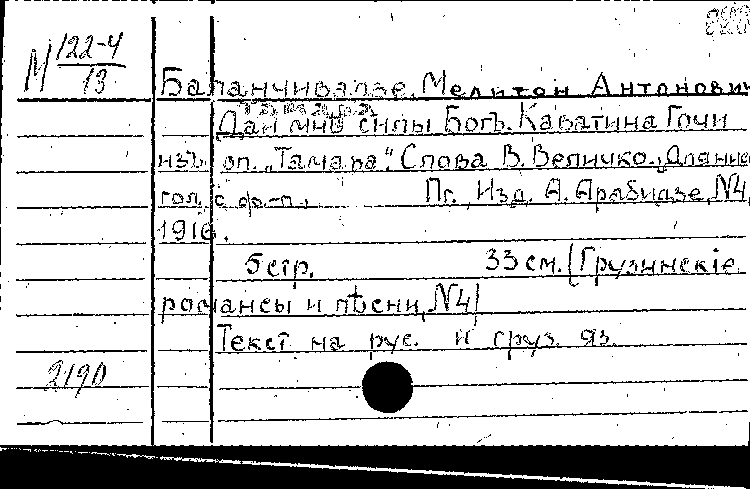 М 122-4/13
Баланчивадзе, Мелитон Антонович
Тамара
Дай мнѣ силы Богъ. Каватина Гочи
изъ оп. „Тамара". Слова В. Величко. Для ниж.
гол. с ф.-п. Пг., Изд. А. Арабидзе, N4,
1916.
5 стр. 33 см. (Грузинскіе
романсы и пѣсни, N4)
Текст на рус. и груз. яз.
2190